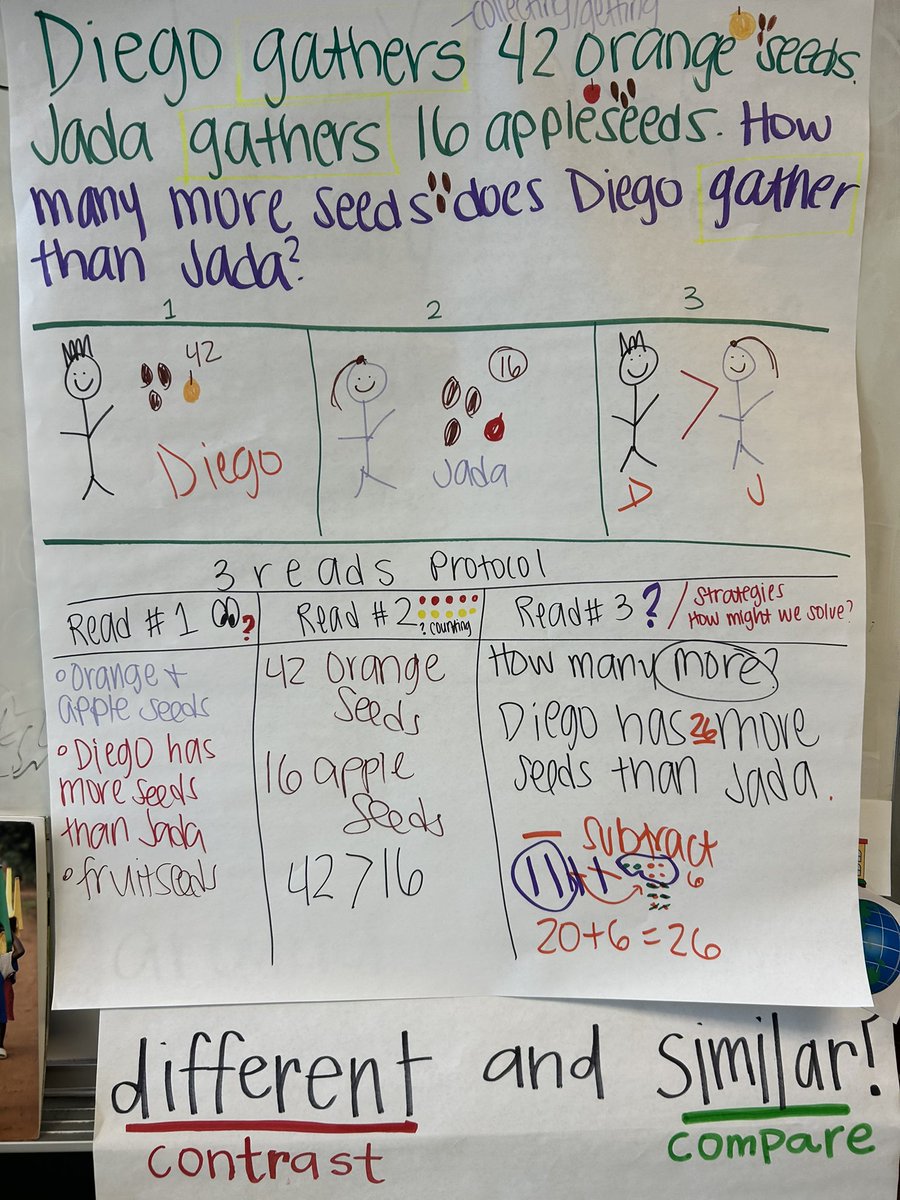 collecting/getting
Diego gathers 42 orange seeds.
Jada gathers 16 appleseeds. How
many more seeds does Diego gather
than Jada?
1
2
3
42
Diego
16
Jada
>
D
J
3 reads Protocol
Read #1 ?
orange +
apple seeds
Diego has
more seeds
than Jada
fruitseeds
Read #2
? counting
42 orange
seeds
16 apple
seeds
42 > 16
Read #3 ? / Strategies
How might we solve?
How many more?
Diego has 26 more
seeds than Jada.
— subtract
6
20+6=26
different and similar!
contrast
compare